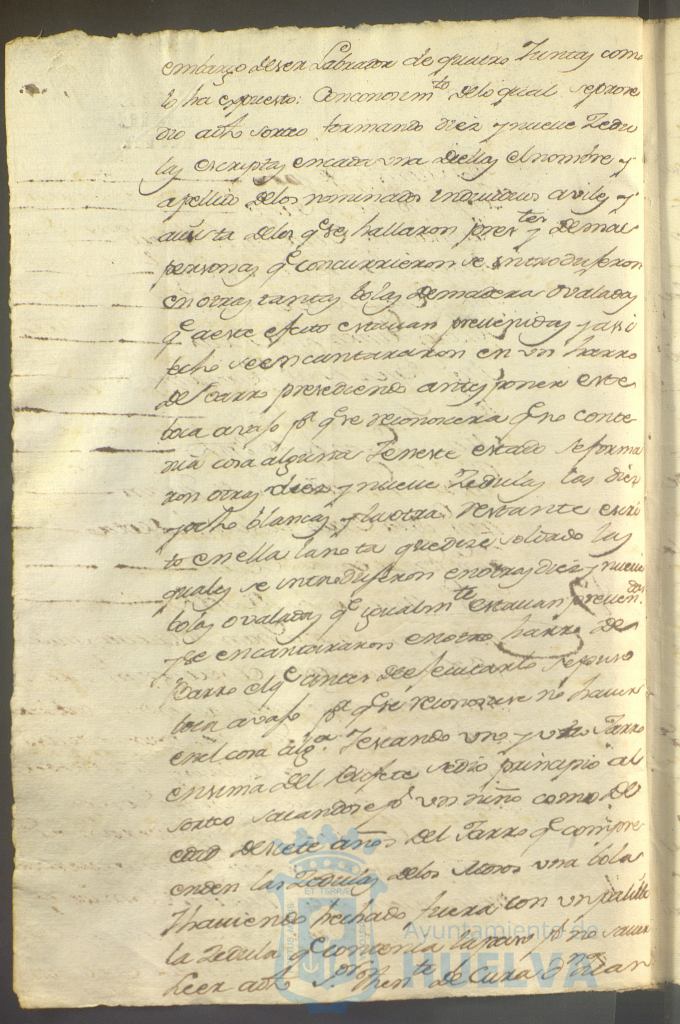 embargo deser Labrador de quatro Juntas como
lo ha expuesto: Enconosim.to delo qual se proce
dio adho sorteo formando diez y nueve Zedu
las escriptas encada una dellas el nombre y
apellido delos nominados individuos aviles y
avista delos q.e se hallaron pres.tes y demas
personas q.e concurrieron se introdujeron
en otras tantas bolas demadera ovaladas
q.e aeste efecto estavan prevenidas y asi
fho se encantararon en un Jarro
de barro presediendo antes poner este
boca avajo p.a q.e se reconociera q.e no conte
nia cosa alguna Yeneste estado se forma
ron otras diez y nueve Zedulas las diez
y ocho blancas y la otra restante escri
to en ella la nota que dize soldado las
quales se introdujeron en otras diez y nueve
bolas ovaladas q.e igualm.te estavan prevenidas
y se encantararon en otro Jarro de
Barro el q.e antes de se puso
boca avajo p.a q.e se reconosiese no haver
en el cosa alg.a Yestando uno y otro Jarro
ensima del bufete se dio principio al
sorteo sacandose p.r un niño como de
edad de siete años del Jarro q.e compre
enden las Zedulas delos Mosos una bola
Yhaviendo hechado fuera con un palillo
la Zedula q.e contenia la paso p.r no saver
leer adho S.or Then.te de Cura D.n Juan
Ayuntamiento de
HUELVA